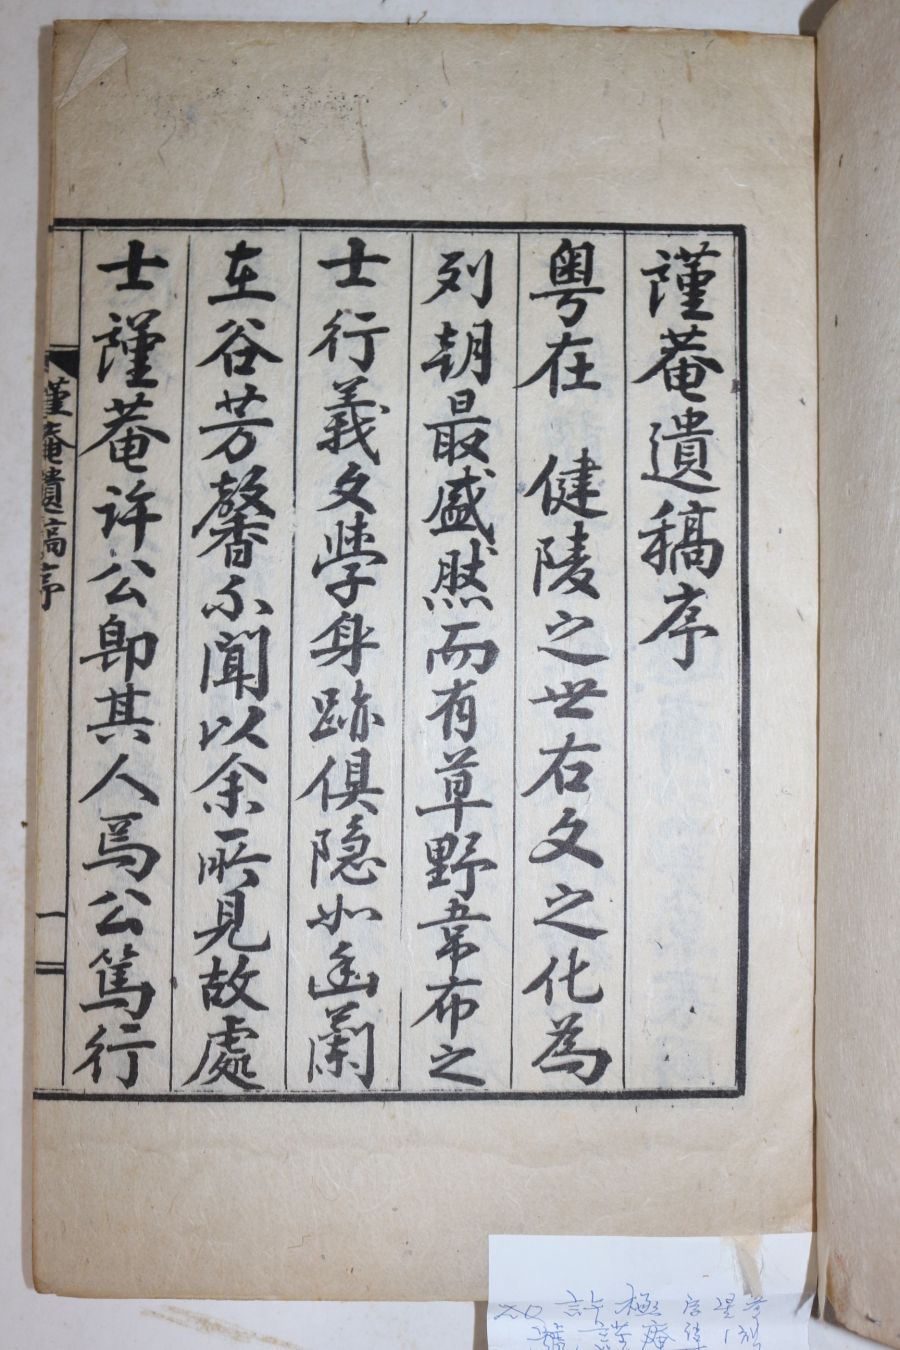 謹菴遺稿序
粤在 健陵之世右文之化為
列朝最盛然而有草野韋布之
士行義文學身跡俱隐如幽蘭
在谷芳馨不聞以余所見故處
士謹菴許公即其人焉公篤行
謹菴遺稿序
一
許極字星
號謹庵